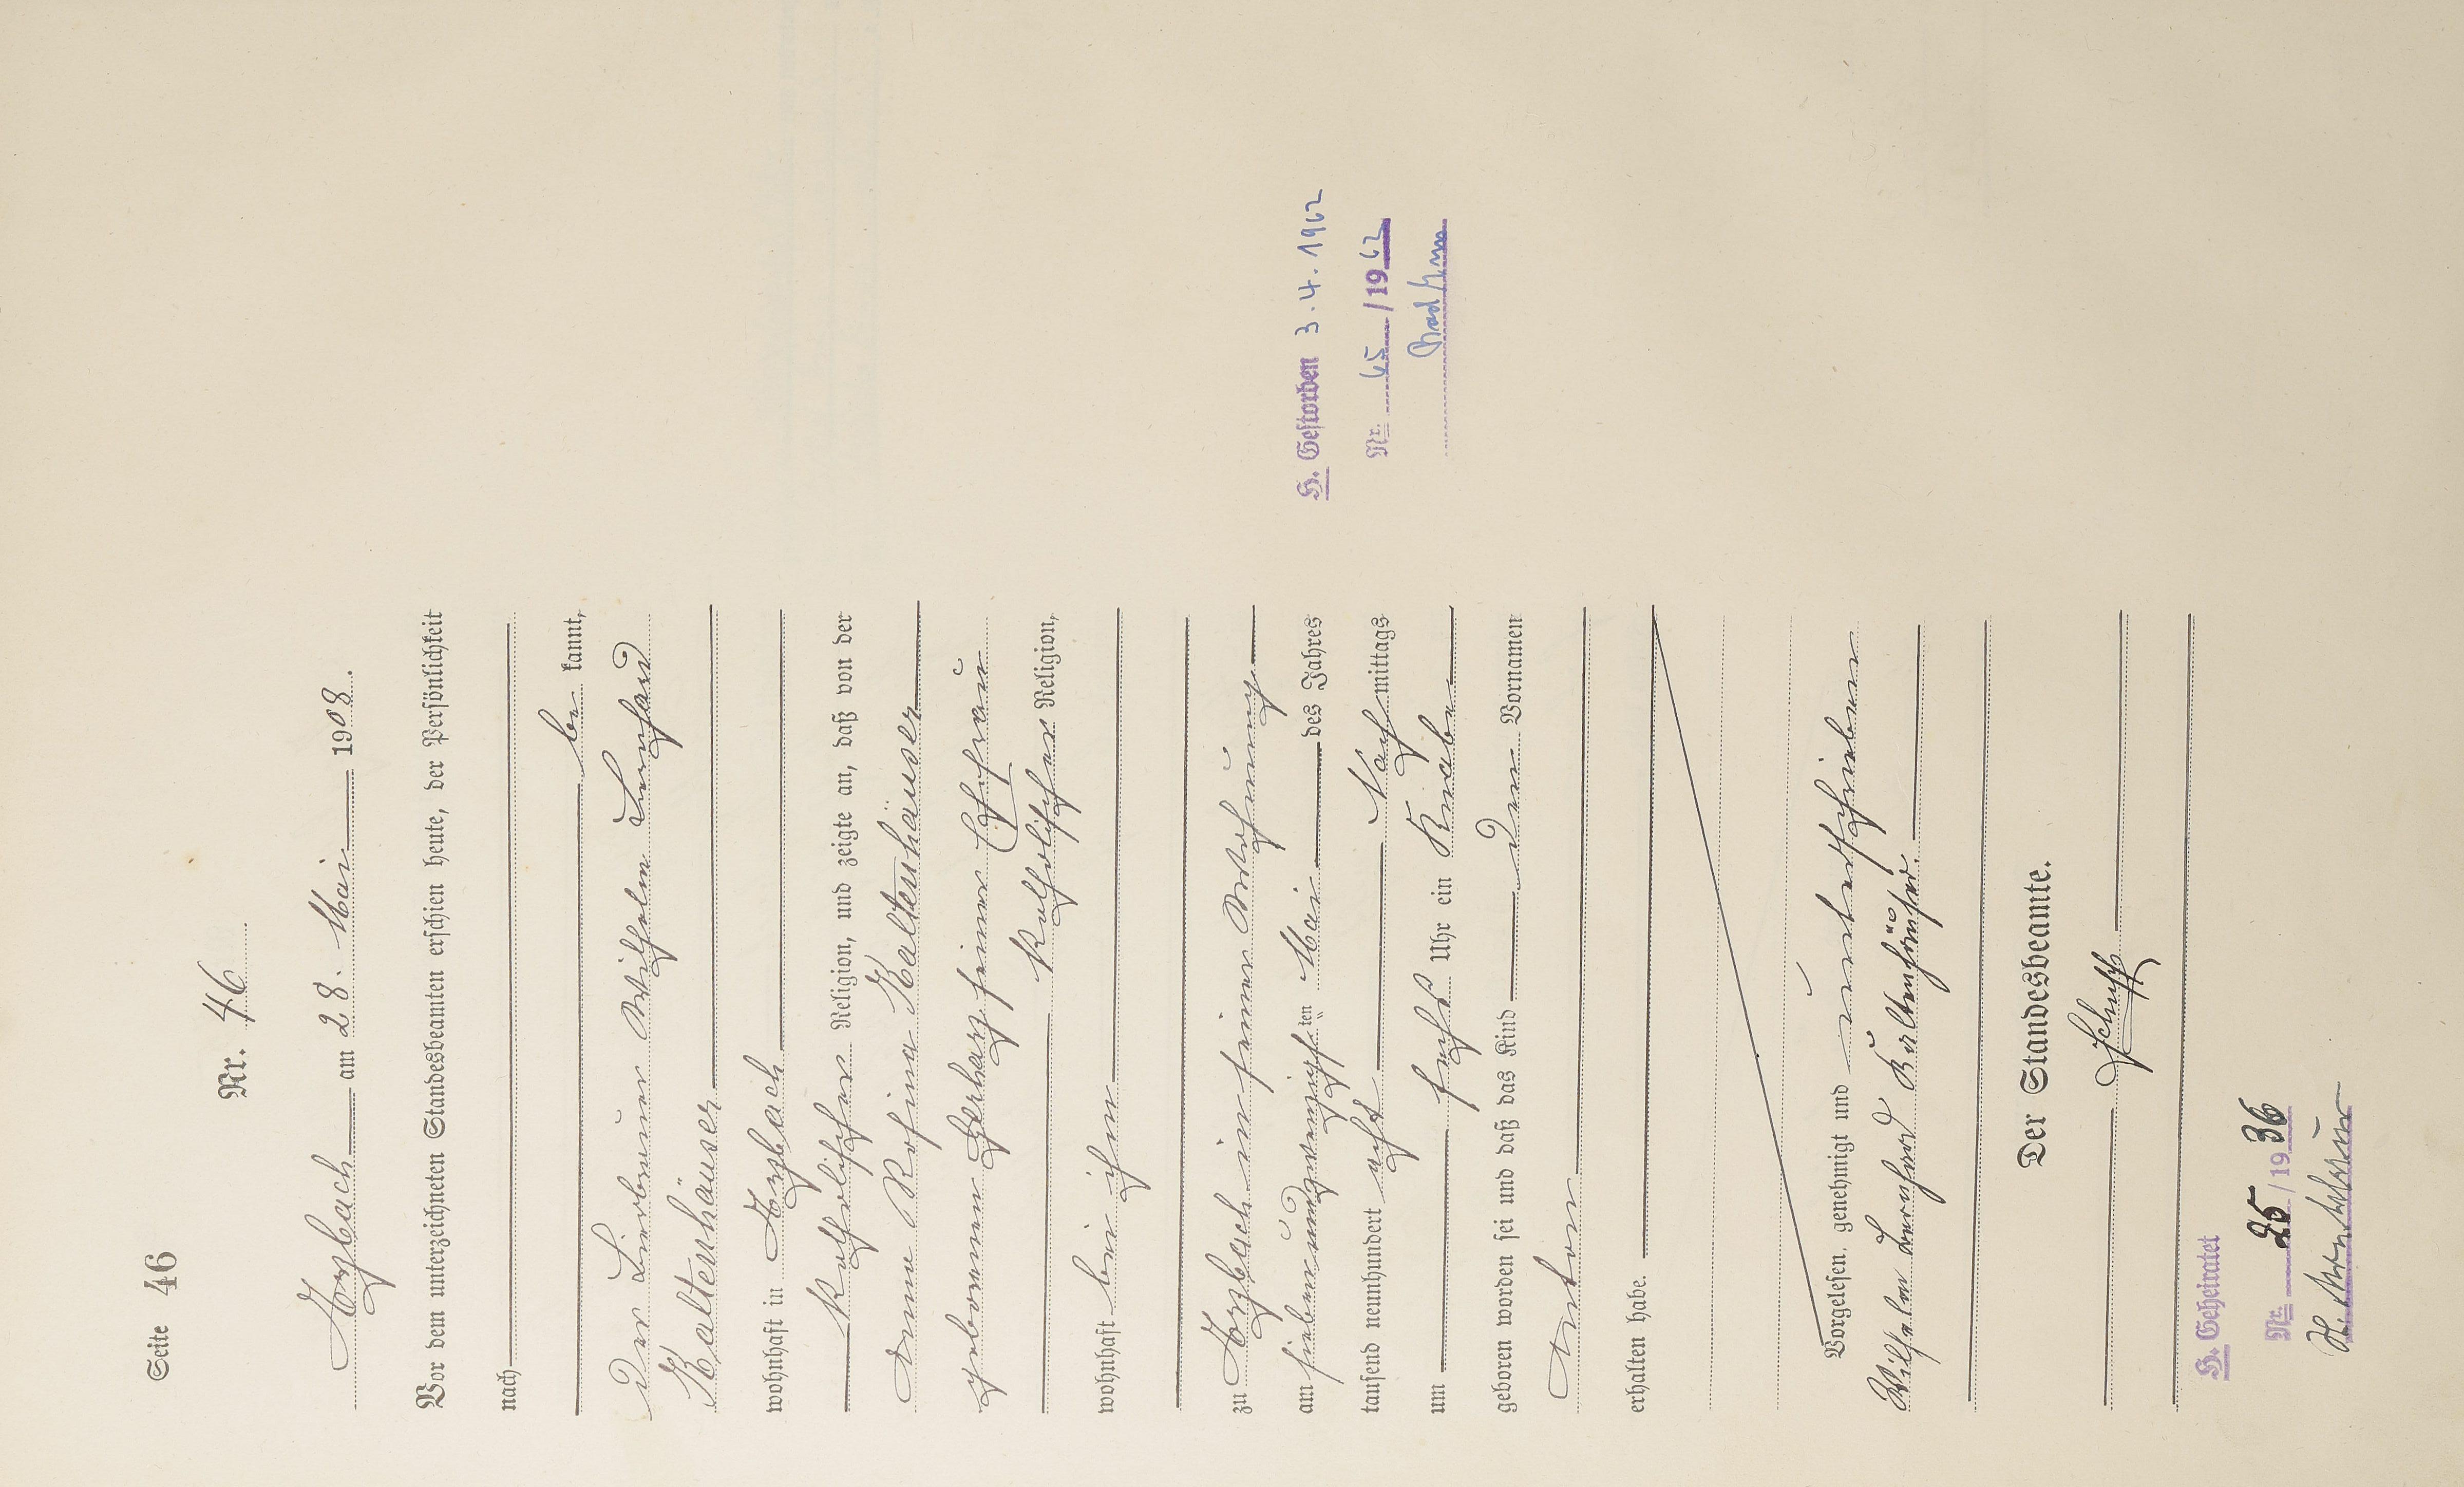 Seite 46
Nr. 46
Atzbach am 28. Mai 1908.
Vor dem unterzeichneten Standesbeamten erschien heute, der Persönlichkeit
nach
be kannt,
der Bierbrauer Wilhelm Bernhard
Kaltenhäuser
wohnhaft in Atzbach
katholischer Religion, und zeigte an, daß von der
Anna Rosina Kaltenhäuser
geborenen Gerharz seiner Ehefrau
katholischer Religion,
wohnhaft bei ihm
zu Atzbach in seiner Wohnung
am siebenundzwanzigsten Mai des Jahres
tausend neunhundert acht Nach mittags
um sechs Uhr ein Knabe
geboren worden sei und daß das Kind den Vornamen
Anton
erhalten habe.
Vorgelesen, genehmigt und unterschrieben
Wilhelm Bernhard Kaltenhäuser.
Der Standesbeamte.
H. Geheiratet
Nr. 25 / 1936
H. Gestorben 3.4.1962
Nr. 65 / 1962